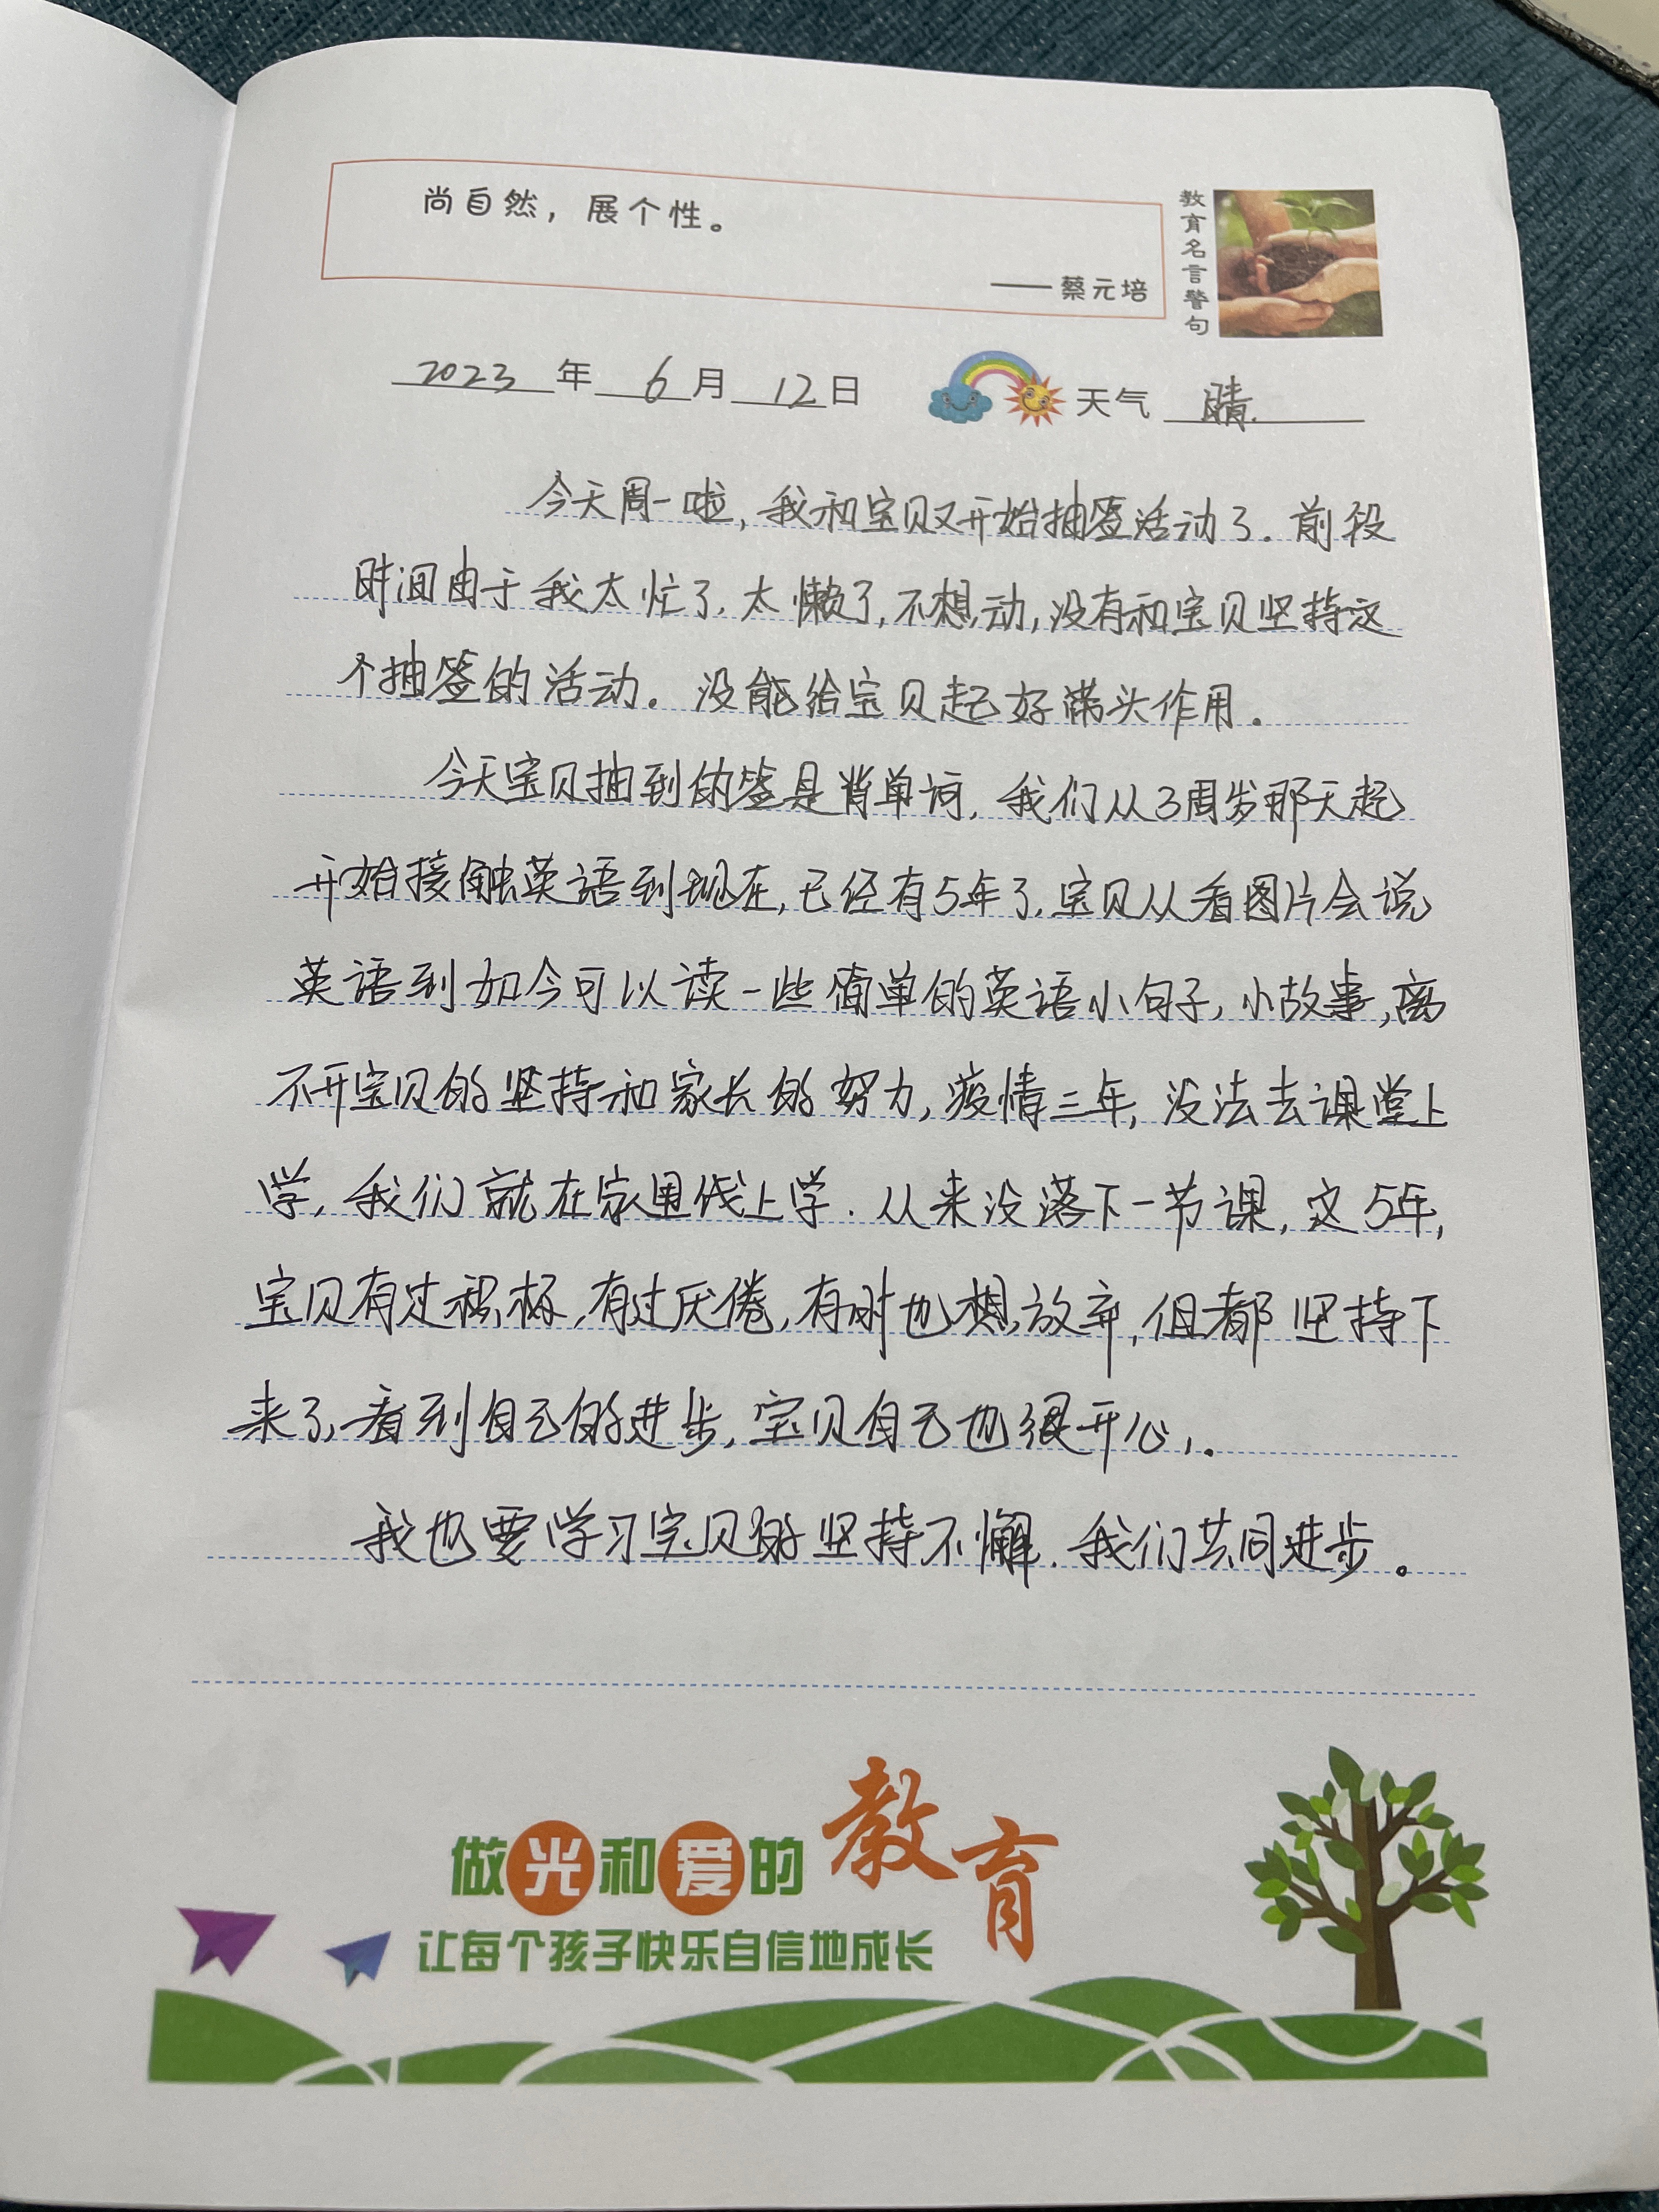 尚自然，展个性。
——蔡元培
教育名言警句
2023年6月12日 天气 晴.
今天周一啦，我和宝贝又开始抽签活动了. 前段
时间由于我太忙了, 太懒了, 不想动, 没有和宝贝坚持这
个抽签的活动. 没能给宝贝起好带头作用.
今天宝贝抽到的签是背单词, 我们从3周岁那天起
开始接触英语到现在, 已经有5年了, 宝贝从看图片会说
英语到如今可以读一些简单的英语小句子, 小故事, 离
不开宝贝的坚持和家长的努力, 疫情三年, 没法去课堂上
学, 我们就在家里线上学. 从来没落下一节课, 这5年,
宝贝有过积极, 有过厌倦, 有时也想放弃, 但都坚持下
来了, 看到自己的进步, 宝贝自己也很开心,.
我也要学习宝贝的坚持不懈. 我们共同进步。
做光和爱的教育
让每个孩子快乐自信地成长